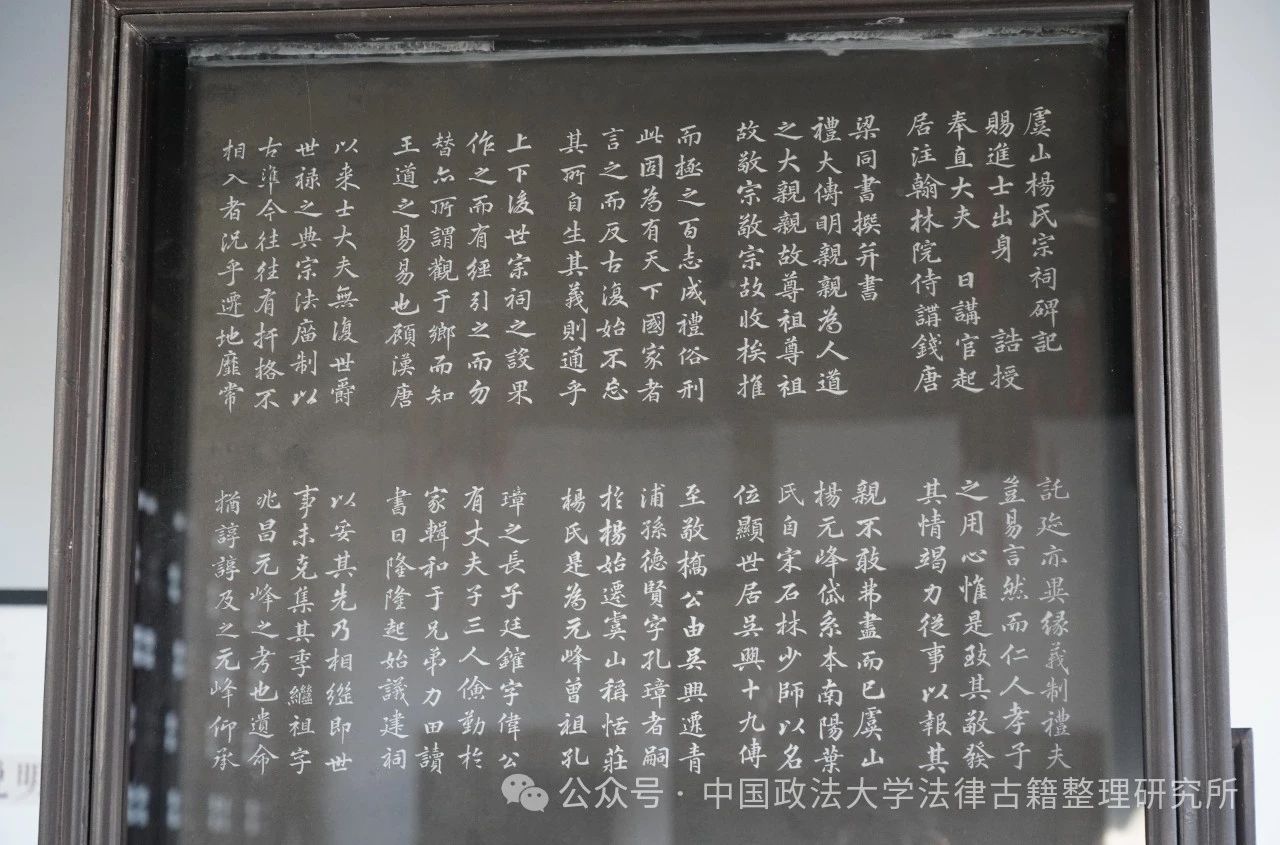 虞山楊氏宗祠碑記
賜進士出身 誥授
奉直大夫 日講官起
居注翰林院侍講錢唐
梁同書撰并書
禮大傳明親親為人道
之大親親故尊祖尊祖
故敬宗敬宗故收族推
而極之百志成禮俗刑
此固為有天下國家者
言之而反古復始不忘
其所自生其義則通乎
上下後世宗祠之設果
作之而有經引之而勿
替亦所謂觀于鄉而知
王道之易易也顧漢唐
以来士大夫無復世爵
世禄之典宗法廟制以
古準今往往有扞格不
相入者況乎遷地靡常
託迹亦異緣義制禮夫
豈易言然而仁人孝子
之用心惟是致其敬發
其情竭力從事以報其
親不敢弗盡而已虞山
楊元峰岱系本南陽葉
氏自宋石林少師以名
位顯世居吳興十九傳
至敬橋公由吳興遷青
浦孫德賢字孔璋者嗣
於楊始遷虞山稱恬莊
楊氏是為元峰曾祖孔
璋之長子廷錐字偉公
有丈夫子三人儉勤於
家輯和于兄弟力田讀
書日隆隆起始議建祠
以妥其先乃相繼即世
事未克集其季繼祖字
兆昌元峰之考也遺命
猶諄諄及之元峰仰承
公众号·中国政法大学法律古籍整理研究所
明